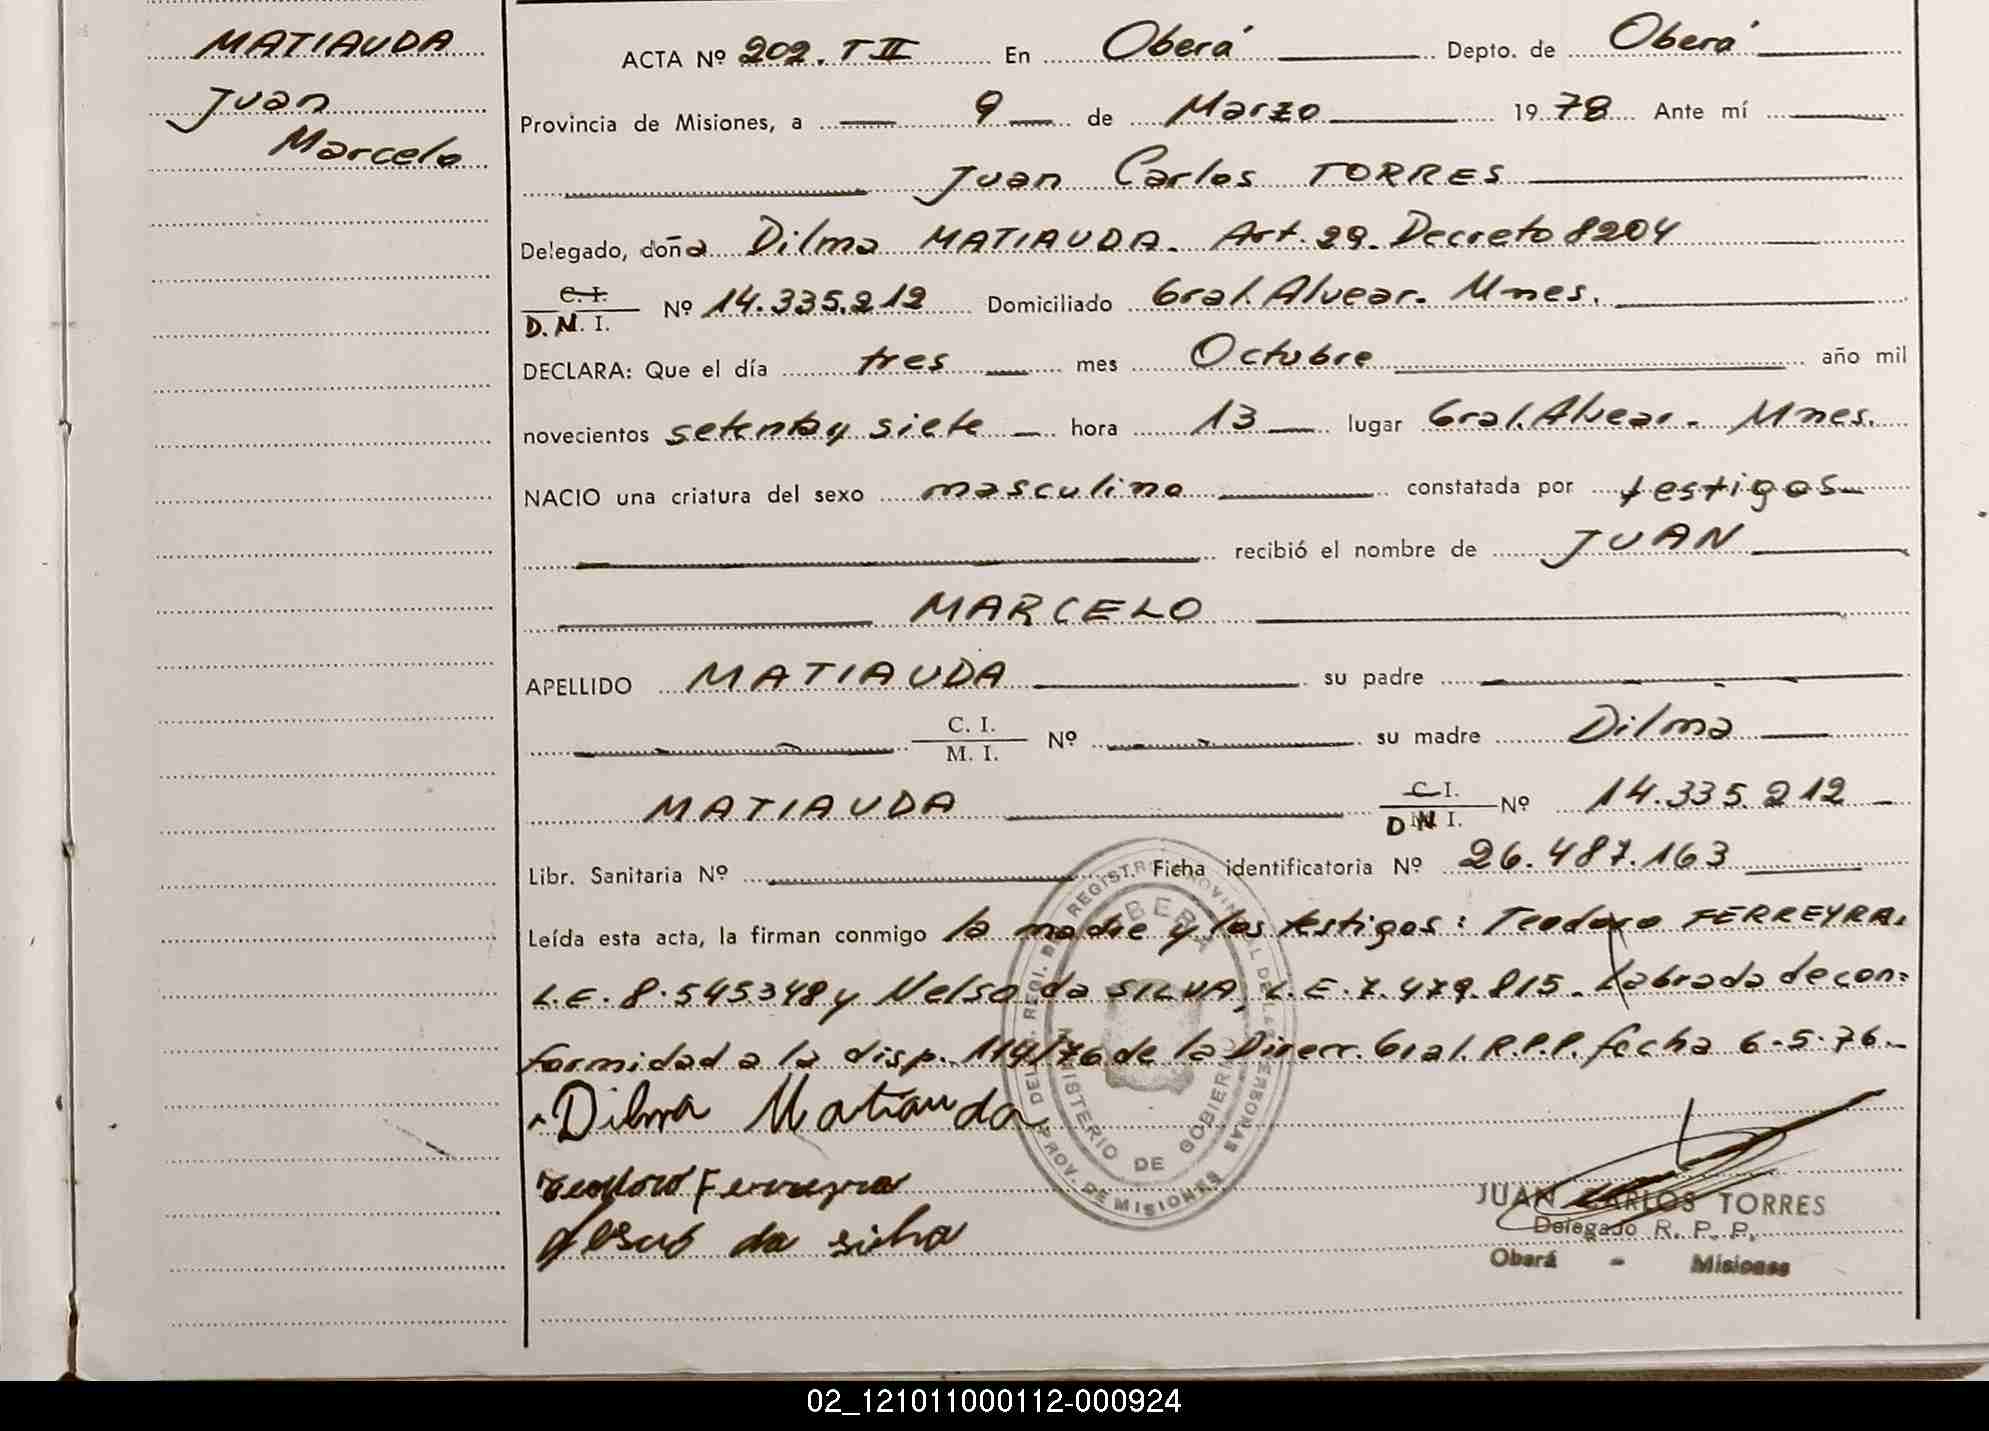 MATIAUDA
Juan
Marcelo
ACTA Nº 202. T II En Oberá Depto. de Oberá
Provincia de Misiones, a 9 de Marzo 19 78 Ante mí
Juan Carlos TORRES
Delegado, doña Dilma MATIAUDA. Art. 29. Decreto 8204
C. I.
D. N. I. Nº 14.335.212 Domiciliado Gral. Alvear. Mnes.
DECLARA: Que el día tres mes Octubre año mil
novecientos setenta y siete hora 13 lugar Gral. Alvear. Mnes.
NACIO una criatura del sexo masculino constatada por testigos
recibió el nombre de JUAN
MARCELO
APELLIDO MATIAUDA su padre
C. I.
M. I. Nº su madre Dilma
MATIAUDA C. I.
D N I. Nº 14.335.212
Libr. Sanitaria Nº Ficha identificatoria Nº 26.487.163
Leída esta acta, la firman conmigo la madre y los testigos: Teodoro FERREYRA.
L.E. 8.545348 y Nelso da SILVA, L.E. 7.479.815. Labrada de con=
formidad a la disp. 114/76 de la Direcc. Gral. R.P.P. fecha 6-5-76.
Dilma Matiauda
Teodoro Ferreyra
da silva
MINISTERIO DE GOBIERNO
PROV. DE MISIONES
OBERA
JUAN CARLOS TORRES
Delegado R. P. P.
Oberá - Misiones
02_121011000112-000924